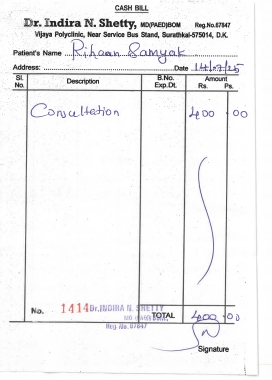 CASH BILL
Dr. Indira N. Shetty, MD(PAED)BOM Reg.No.67847
Vijaya Polyclinic, Near Service Bus Stand, Surathkal-575014, D.K.
Patient's Name Rihaan Samyak
Address: Date 14/07/25
Sl. No. Description B.No. Exp.Dt. Amount Rs. Ps.
Consultation 400 .00
No. 1414 Dr. INDIRA N. SHETTY
MD (PAED) BOM TOTAL 400 .00
Reg. No. 67847
Signature